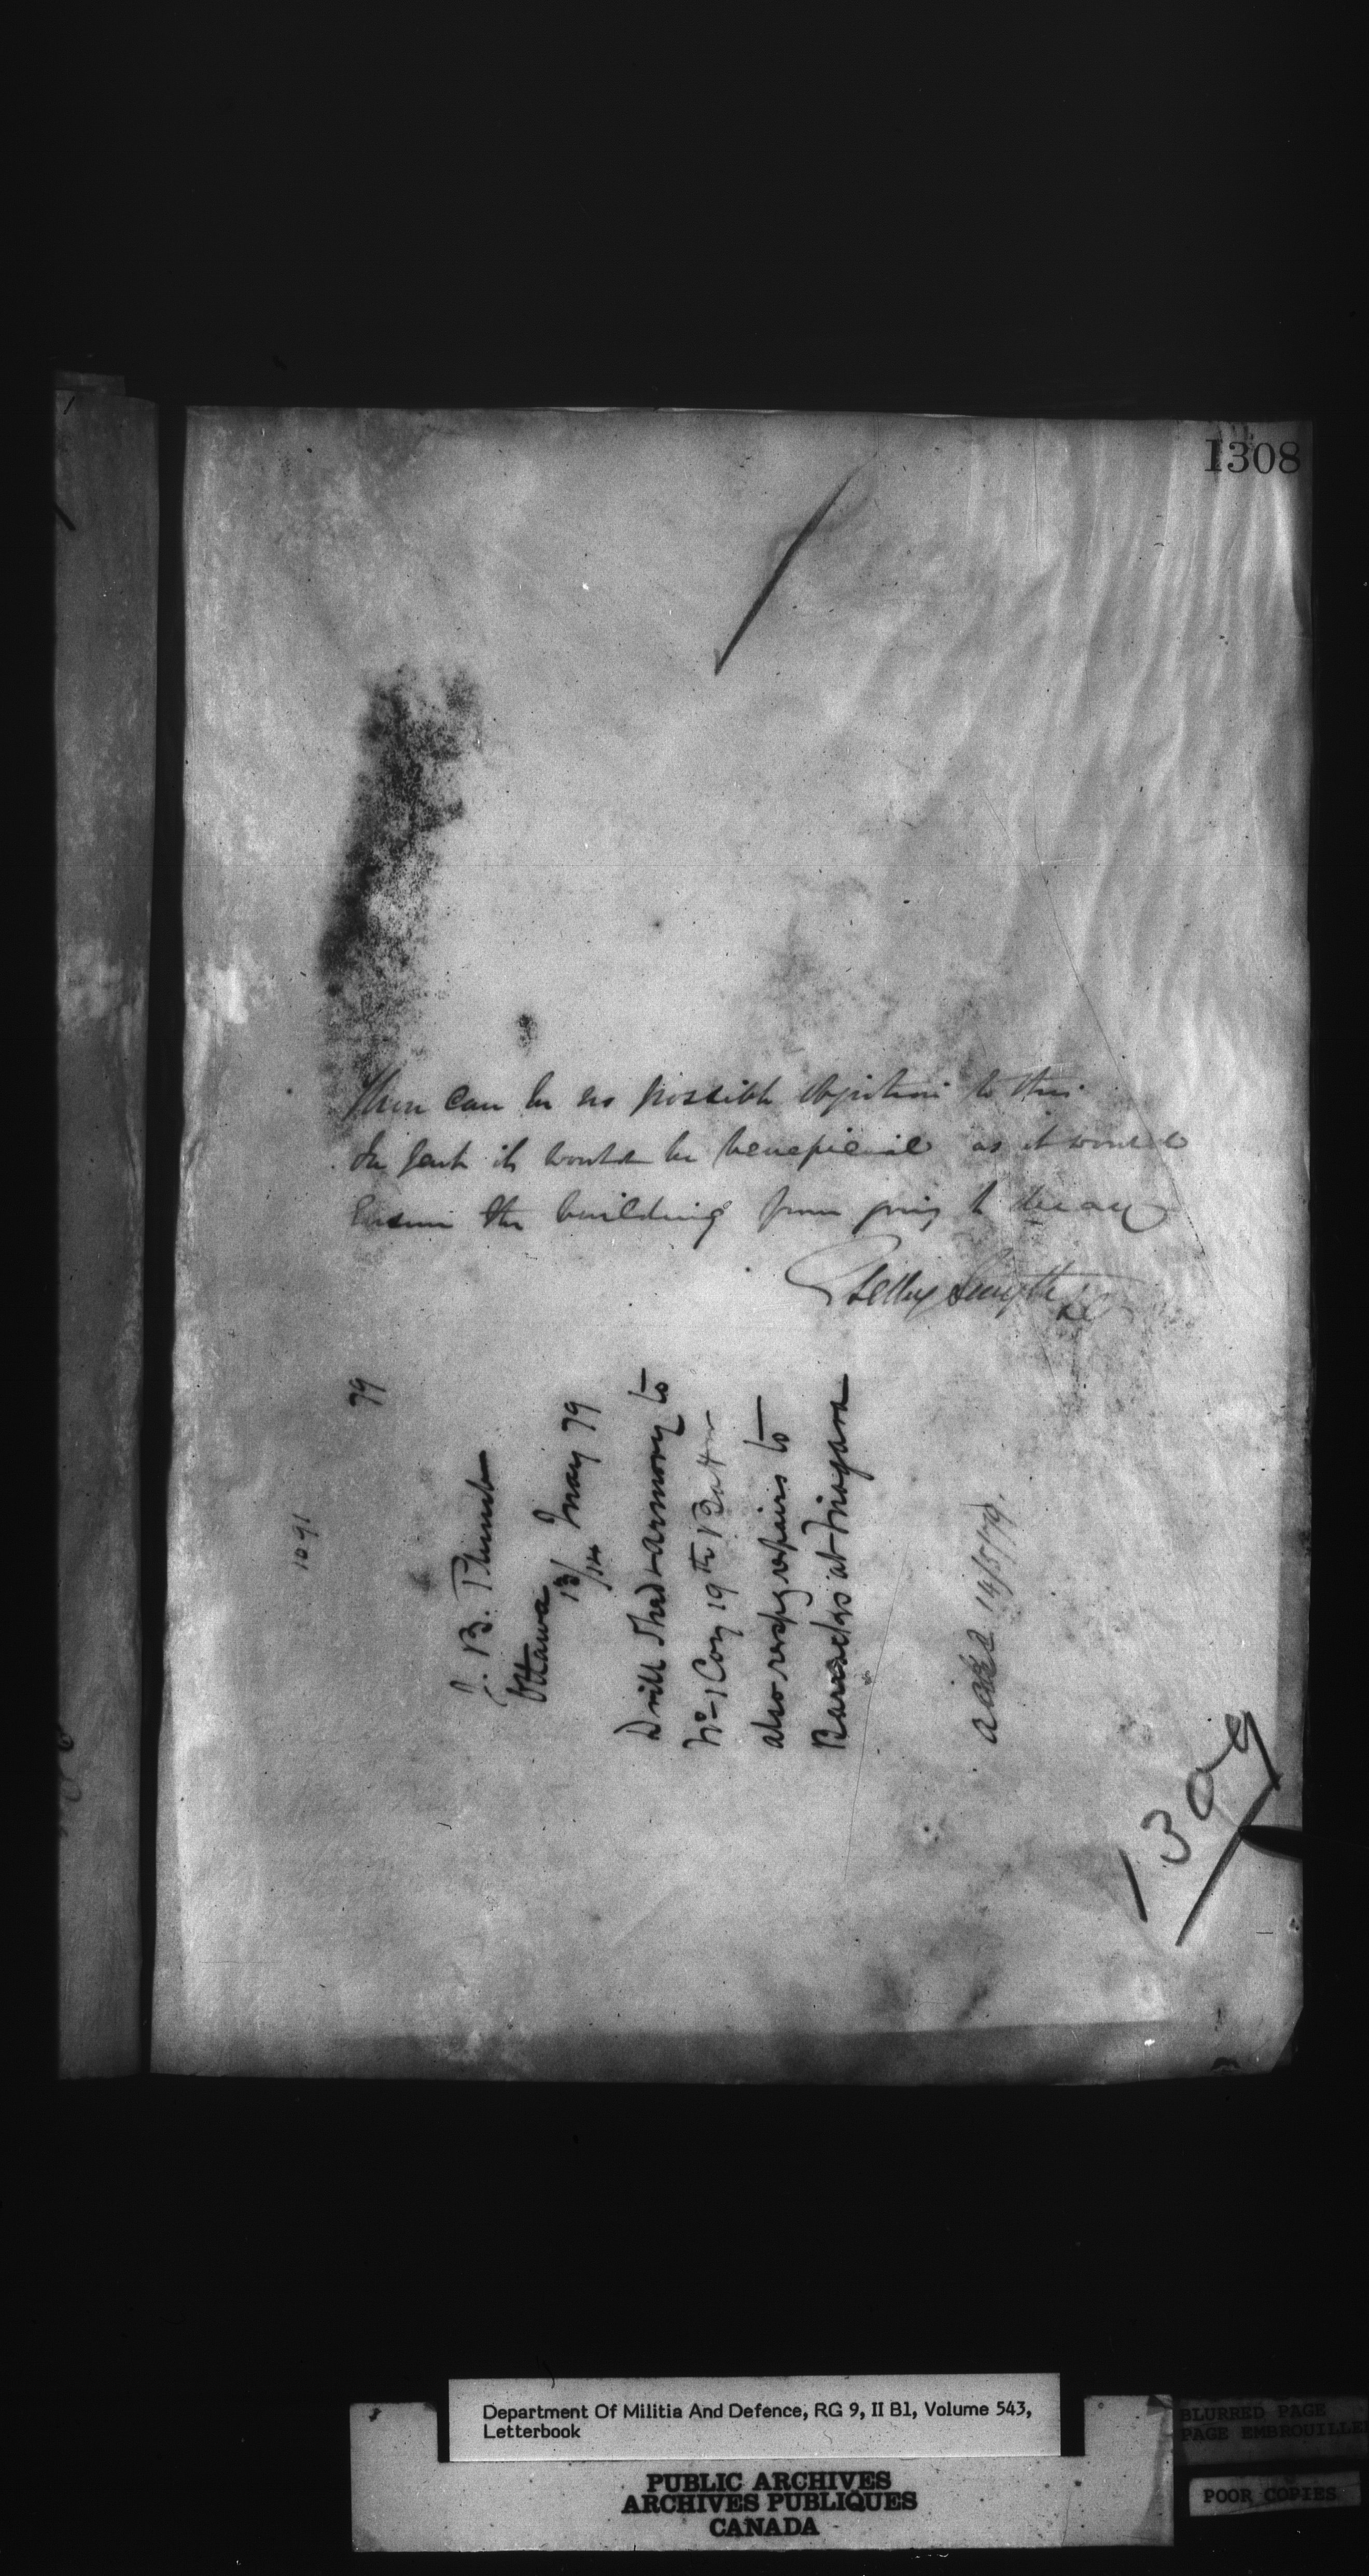 1308
There can be no possible objection to this
In fact it would be beneficial as it would
Ensure the building from going to decay
Selby Smyth
79
1091
J. B. Plumb
Ottawa
13/14 May 79
Drill Shed & Armory to
No-1 Coy 19th Battn
also respg repairs to
Barracks at Niagara
14/5/79.
1309
Department Of Militia And Defence, RG 9, II B1, Volume 543,
Letterbook
PUBLIC ARCHIVES
ARCHIVES PUBLIQUES
CANADA
BLURRED PAGE
PAGE EMBROUILLE
POOR COPIES